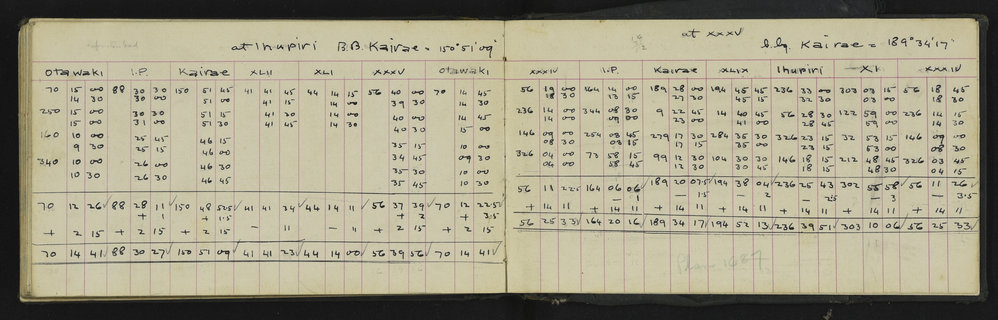 at Ihupiri B.B. Kairae = 150°51'09"
Otawaki I.P. Kairae XLII XLI XXXV Otawaki
70 15 00 88 30 30 150 51 45 41 41 45 44 14 15 56 40 00 70 14 45
14 30 30 00 51 00 41 15 14 00 39 30 14 30
250 15 00 30 30 51 15 41 30 14 00 40 00 14 45
15 00 31 00 51 30 41 45 14 30 40 30 15 00
160 10 00 25 45 46 15 35 15 10 00
9 30 25 15 46 00 35 15 10 00
340 10 00 26 00 46 30 34 45 09 30
10 30 26 30 46 45 35 30 10 00
35 45 10 30
70 12 26 ✓ 88 28 11 ✓ 150 48 52.5 ✓ 41 41 34 ✓ 44 14 11 ✓ 56 37 39 ✓ 70 12 22.5 ✓
+ 1 + 1.5 + 2 + 3.5
+ 2 15 + 2 15 + 2 15 - 11 - 11 + 2 15 + 2 15
70 14 41 ✓ 88 30 27 ✓ 150 51 09 ✓ 41 41 23 ✓ 44 14 00 ✓ 56 39 56 ✓ 70 14 41 ✓
at XXXV
b.g. Kairae = 189°34'17"
XXXIV I.P. Kairae XLIX Ihupiri XI XXXIV
56 19 00 164 14 00 189 28 00 194 45 45 236 33 00 303 03 15 56 18 45
18 30 13 15 27 30 45 15 32 30 03 00 18 30
236 14 00 344 08 30 9 22 45 14 40 45 56 28 30 122 59 00 236 14 15
14 00 09 00 23 00 41 00 28 45 59 00 14 30
146 09 00 254 03 45 279 17 30 284 35 30 326 23 15 32 53 15 146 09 00
08 30 03 15 17 15 35 00 23 15 53 00 08 30
326 04 00 73 58 15 99 12 30 104 30 30 146 18 15 212 48 45 326 03 45
04 00 58 45 12 30 30 45 18 15 48 30 04 15
56 11 22.5 164 06 06 ✓ 189 20 07.5 ✓ 194 38 04 ✓ 236 25 43 302 55 58 ✓ 56 11 26 ✓
- 1 1.5 2 - 2.5 - 3 - 3.5
+ 14 11 + 14 11 + 14 11 + 14 11 + 14 11 + 14 11 + 14 11
56 25 33 ✓ 164 20 16 ✓ 189 34 17 ✓ 194 52 13 ✓ 236 39 51 ✓ 303 10 06 ✓ 56 25 33 ✓